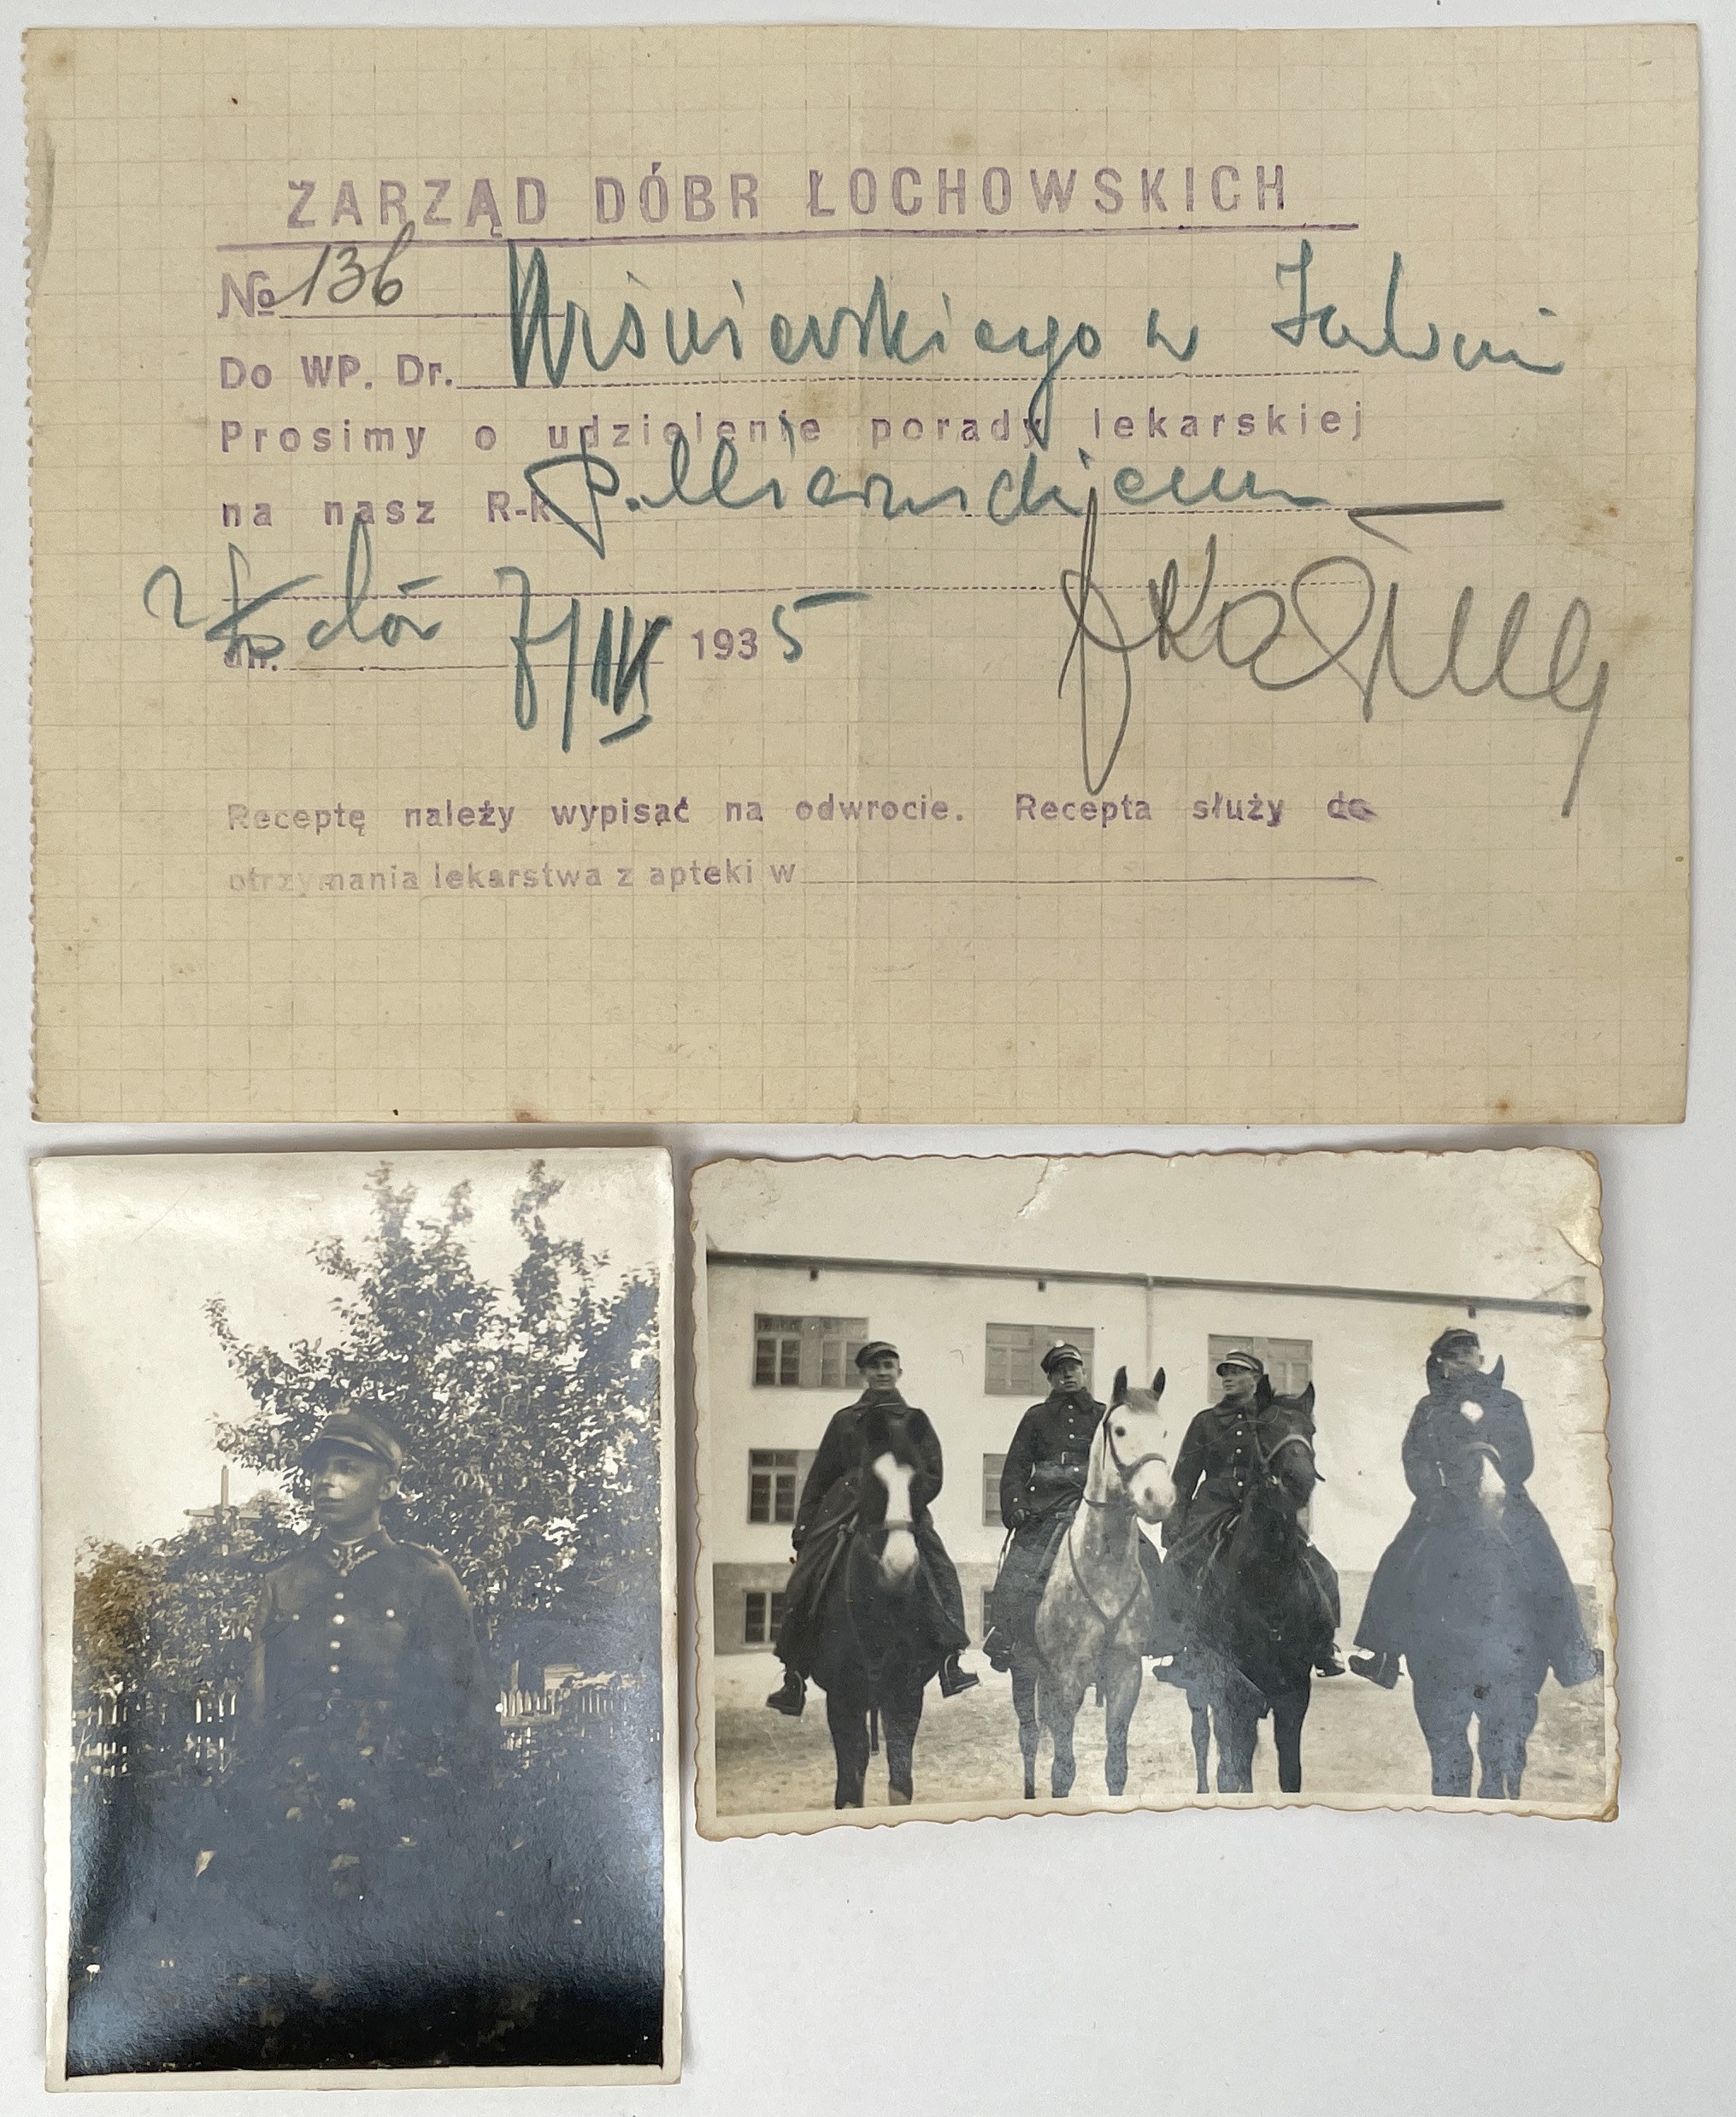 ZARZĄD DÓBR ŁOCHOWSKICH
№ 136
Do WP. Dr. Wiśniewskiego w
Prosimy o udzielenie porady lekarskiej
na nasz R-k P.
dn. 7/III 1935
Receptę należy wypisać na odwrocie. Recepta służy do
otrzymania lekarstwa z apteki w